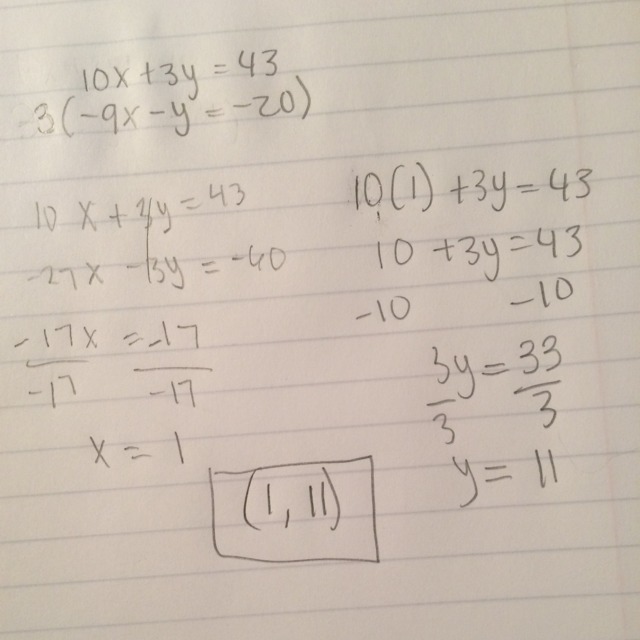 10x + 3y = 43
3(-9x - y = -20)
10x + 3y = 43
-27x - 3y = -60
-17x = -17
-17 -17
x = 1
10(1) + 3y = 43
10 + 3y = 43
-10 -10
3y = 33
3 3
y = 11
(1, 11)